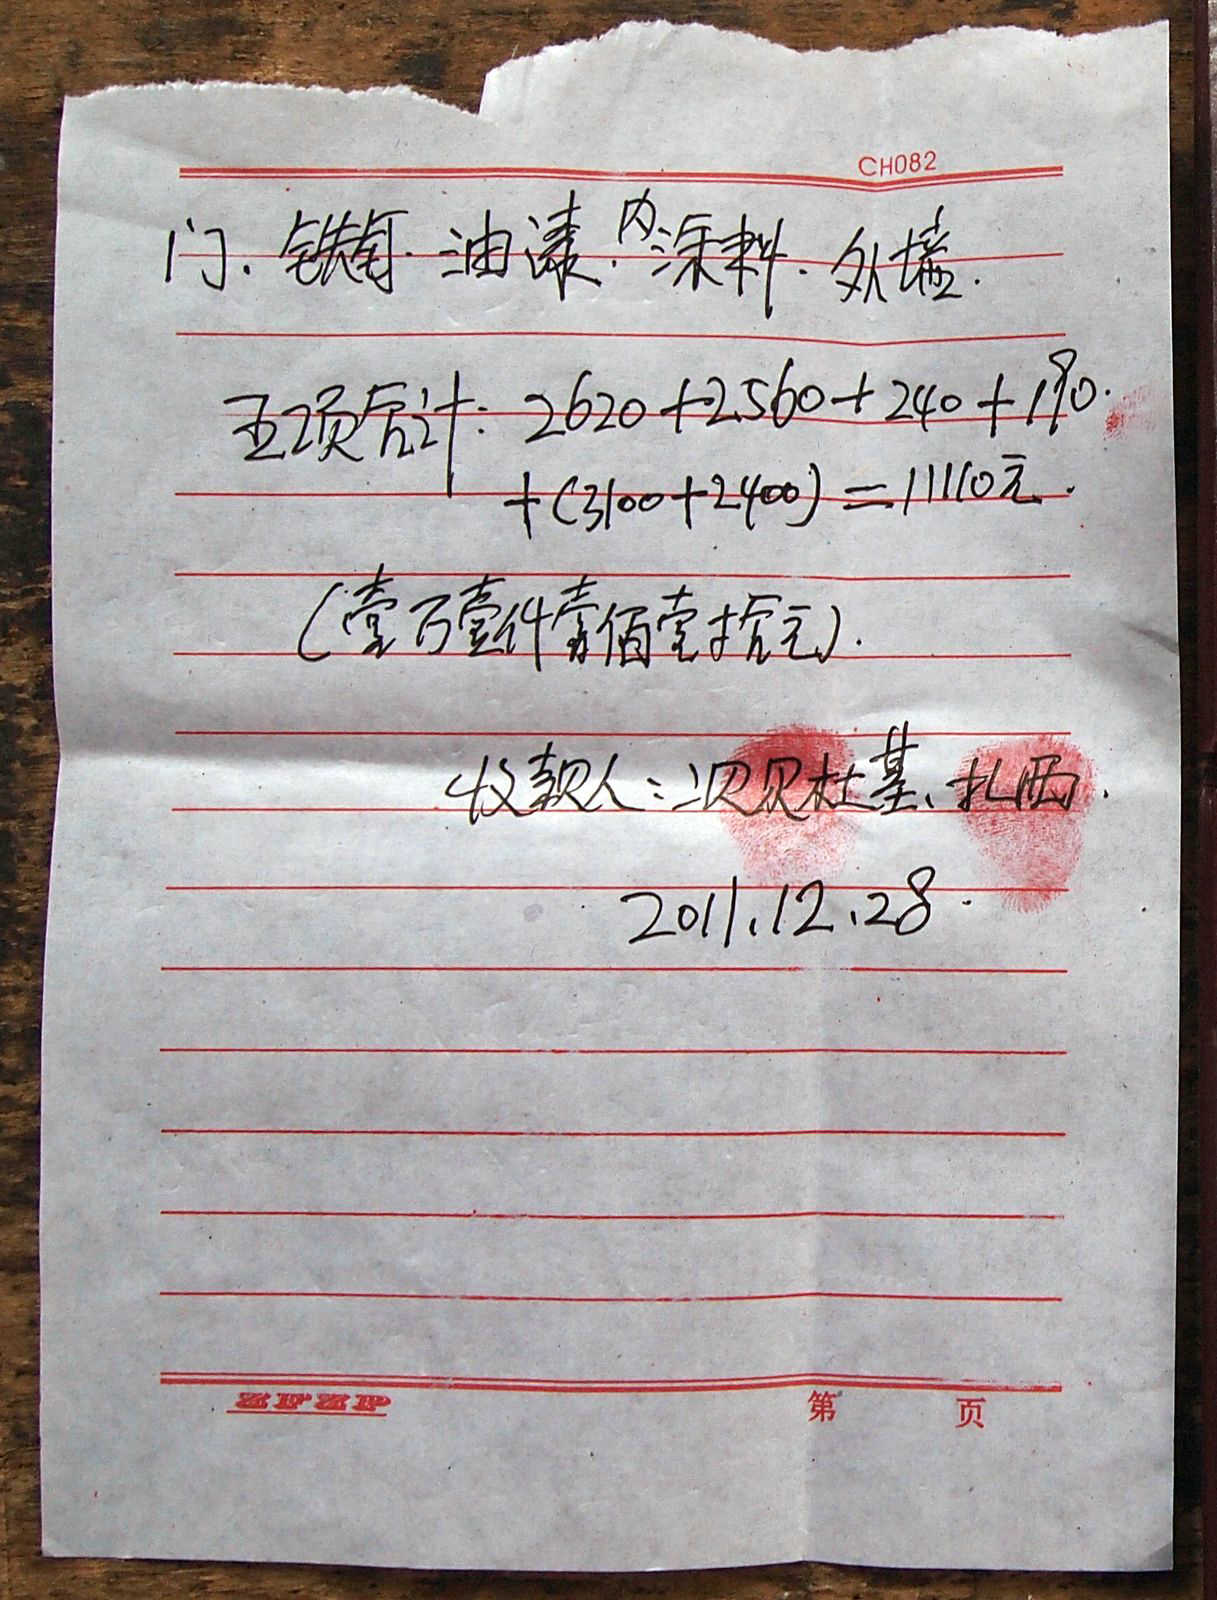 CH082
门.铁钉.油漆.内涂料.外墙.
五项合计:2620+2560+240+190.
+(3100+2400)=11110元.
(壹万壹仟壹佰壹拾元).
收款人:次贝贝杜基、扎西.
2011.12.28.
ZFZP
第 页